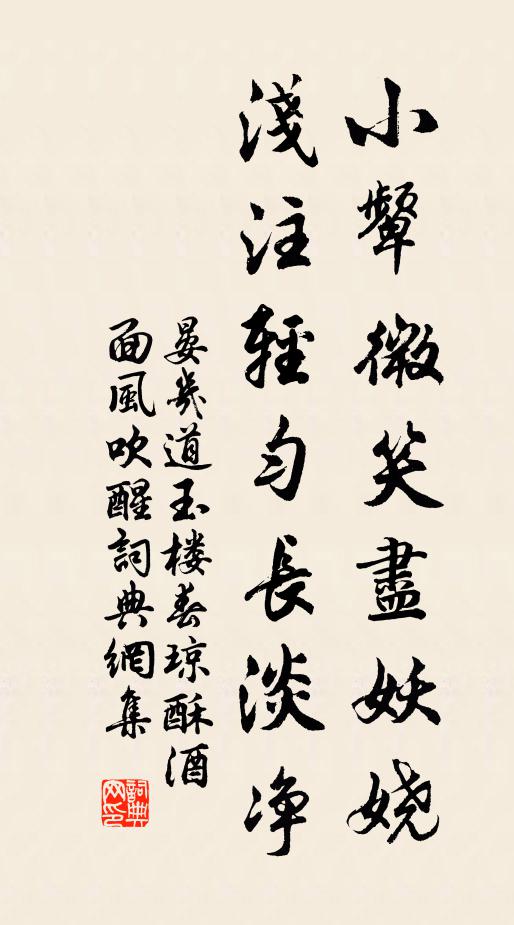 小顰微笑盡妖嬈
淺注輕勻長淡净
晏幾道玉樓春琼酥酒
面風吹醒詞典網集
詞典
网印